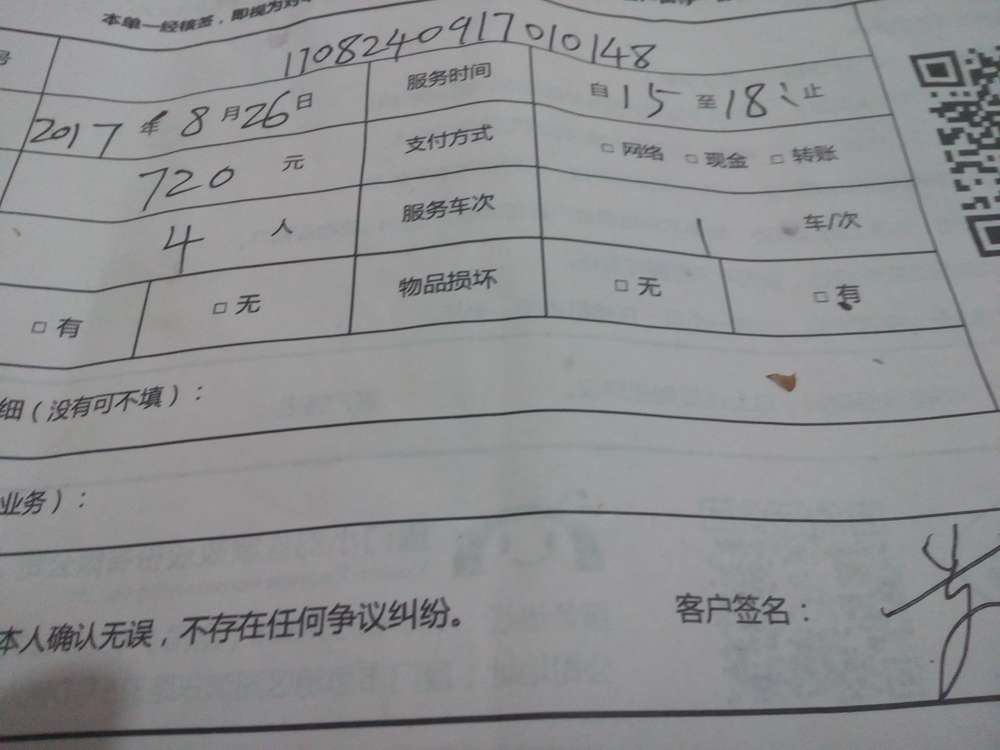 本单一经核签，即视为对
号 1108240917010148
2017 年 8 月 26 日 服务时间 自 15 至 18 止
720 元 支付方式 □ 网络 □ 现金 □ 转账
4 人 服务车次 1 车/次
□ 有 □ 无 物品损坏 □ 无 □ 有
细（没有可不填）：
业务）：
本人确认无误，不存在任何争议纠纷。 客户签名：